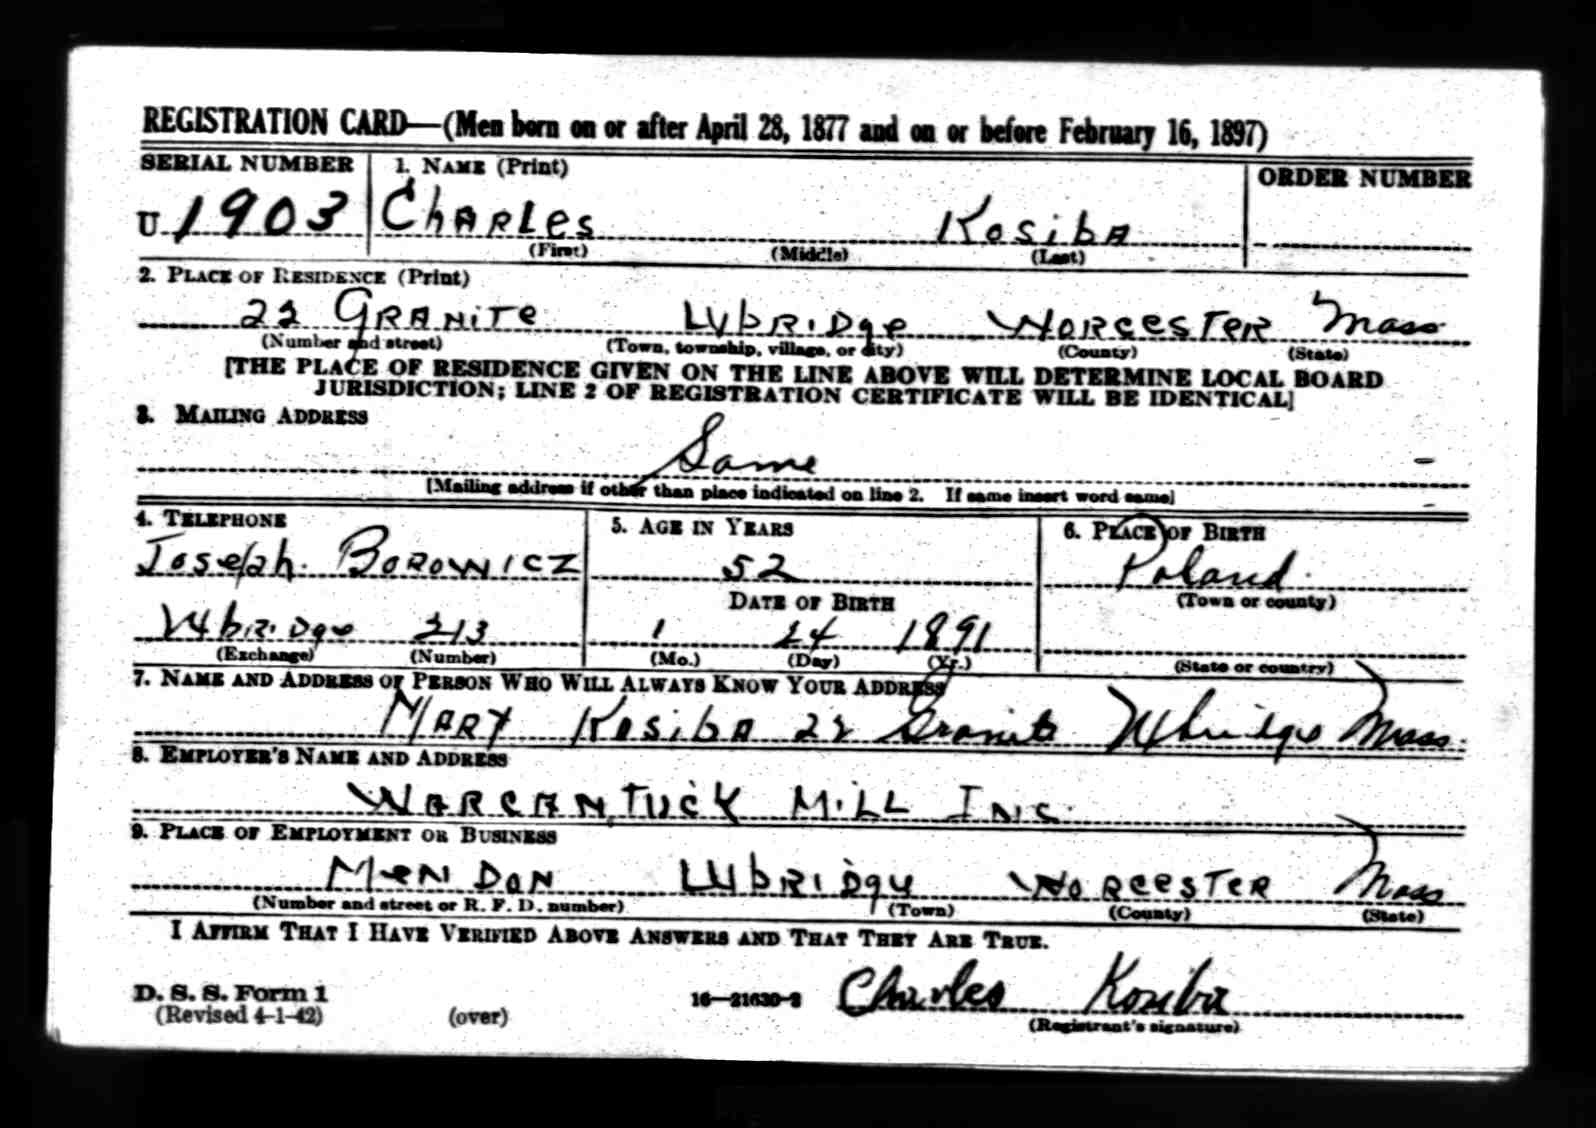 REGISTRATION CARD—(Men born on or after April 28, 1877 and on or before February 16, 1897)
SERIAL NUMBER 1. NAME (Print) ORDER NUMBER
U 1903 Charles Kosiba
(First) (Middle) (Last)
2. PLACE OF RESIDENCE (Print)
22 Granite Uxbridge Worcester Mass
(Number and street) (Town, township, village, or city) (County) (State)
[THE PLACE OF RESIDENCE GIVEN ON THE LINE ABOVE WILL DETERMINE LOCAL BOARD
JURISDICTION; LINE 2 OF REGISTRATION CERTIFICATE WILL BE IDENTICAL]
3. MAILING ADDRESS
Same
[Mailing address if other than place indicated on line 2. If same insert word same]
4. TELEPHONE 5. AGE IN YEARS 6. PLACE OF BIRTH
Joseph Borowicz 52 Poland
DATE OF BIRTH (Town or county)
Uxbridge 213 1 24 1891
(Exchange) (Number) (Mo.) (Day) (Yr.) (State or country)
7. NAME AND ADDRESS OF PERSON WHO WILL ALWAYS KNOW YOUR ADDRESS
Mary Kosiba 22 Granite Uxbridge Mass.
8. EMPLOYER'S NAME AND ADDRESS
Mill Inc.
9. PLACE OF EMPLOYMENT OR BUSINESS
Mendon Uxbridge Worcester Mass
(Number and street or R. F. D. number) (Town) (County) (State)
I AFFIRM THAT I HAVE VERIFIED ABOVE ANSWERS AND THAT THEY ARE TRUE.
D. S. S. Form 1
(Revised 4-1-42) (over) 16—21630-2 Charles Kosiba
(Registrant's signature)